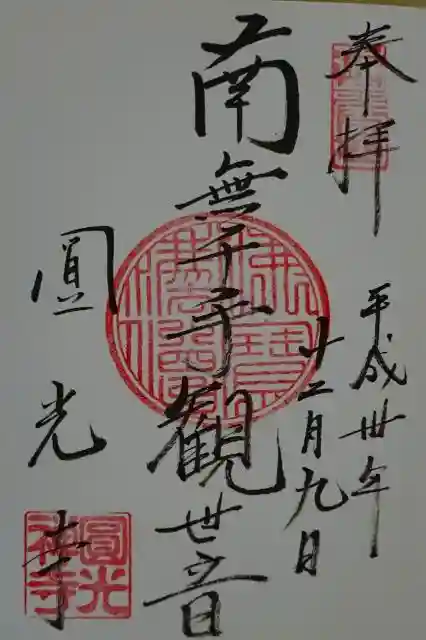 奉拝
平成卅年
十二月九日
南無千手観世音
圓光寺
圓光
禅寺